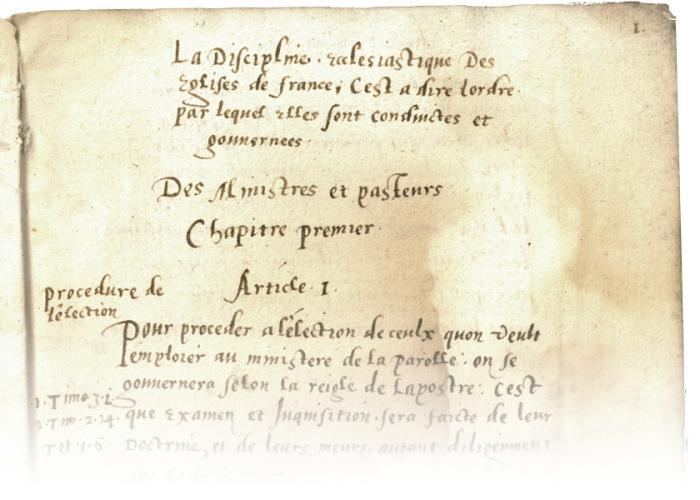 1.
La Discipline. ecclesiastique Des
Eglises de france, Cest a dire lordre
par lequel elles sont conduictes et
gouvernees.
Des Ministres et pasteurs
Chapitre premier.
Article. 1.
procedure de
l'élection
Pour proceder a l'élection de ceulx quon veult
emploier au ministere de la parolle. on se
gouvernera selon la reigle de Lapostre. Cest
1. Tim. 3. 1.
2. Tim. 2. 24. que Examen et Inquisition. sera faicte de leur
Tit. 1. 6. Doctrine, et de leurs meurs. autant diligemment